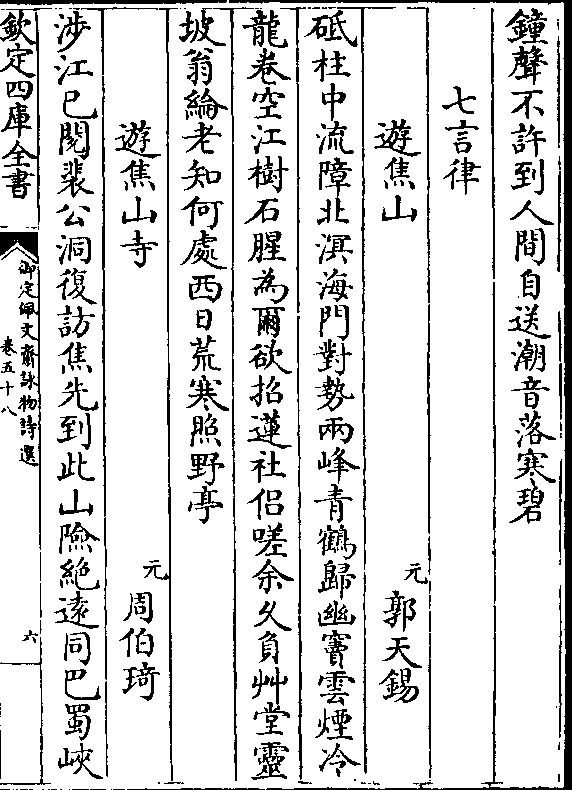 鐘聲不許到人間自送潮音落寒碧
七言律
遊焦山
元郭天錫
砥柱中流障北溟海門對勢兩峰青鶴歸幽竇雲煙冷
龍卷空江樹石腥為爾欲招蓮社侶嗟余久負艸堂靈
坡翁綸老知何處西日荒寒照野亭
遊焦山寺
元周伯琦
涉江已閱裴公洞復訪焦先到此山險絶遠同巴蜀峽
欽定四庫全書
御定佩文齋詠物詩選
卷五十八
六